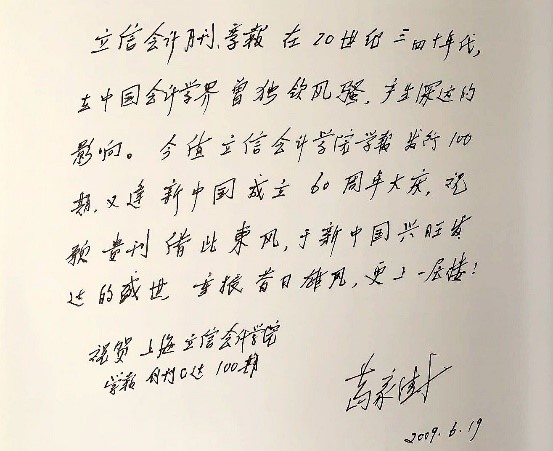 立信会计月刊、季报 在 20世纪 三四十年代,
在中国会计学界 曾独领风骚, 产生深远的
影响。 今值 立信会计学院学报 发行 100
期, 又逢 新中国 成立 60 周年大庆, 祝
愿 贵刊 借此 东风, 于新中国兴旺发
达的盛世 重振 昔日雄风, 更上一层楼!
祝贺 上海立信会计学院
学报 创刊已达 100期
葛家澍
2009.6.19